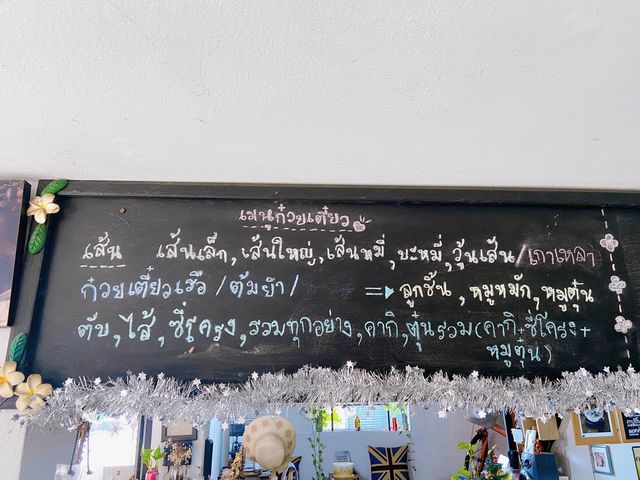 เมนูก๋วยเตี๋ยว
เส้น เส้นเล็ก, เส้นใหญ่, เส้นหมี่, บะหมี่, วุ้นเส้น/เกาเหลา
ก๋วยเตี๋ยวเรือ/ต้มยำ/ = ลูกชิ้น, หมูหมัก, หมูตุ๋น
ตับ, ไส้, ซี่โครง, รวมทุกอย่าง, คากิ, ตุ๋นรวม(คากิ+ซี่โครง+
หมูตุ๋น)